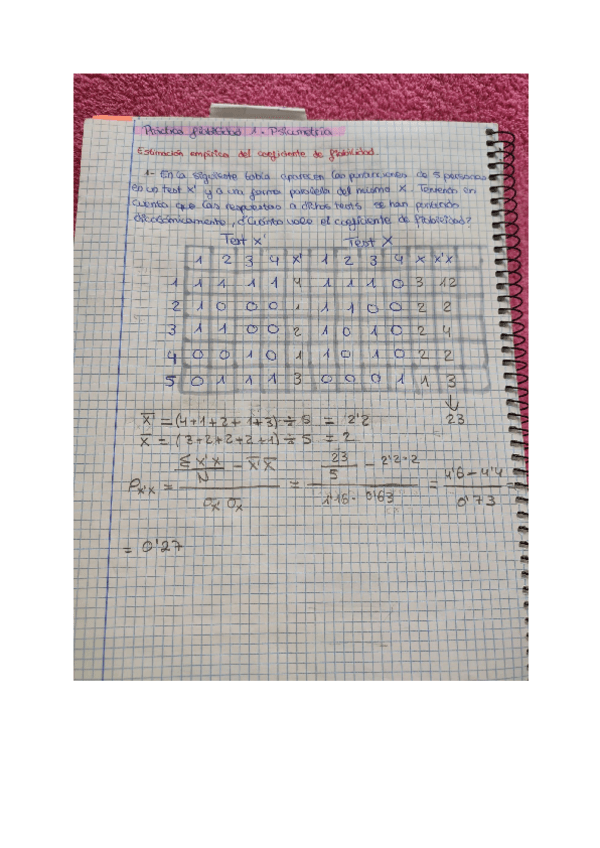 Práctica fiabilidad 1 - Psicometría
Estimación empírica del coeficiente de fiabilidad.
1- En la siguiente tabla aparecen las puntuaciones de 5 personas
en un test X' y a una forma paralela del mismo X. Teniendo en
cuenta que las respuestas a dichos tests se han puntuado
dicotómicamente, ¿Cuánto vale el coeficiente de fiabilidad?
Test X' Test X
1 2 3 4 X' 1 2 3 4 X X'X
1 1 1 1 1 4 1 1 1 0 3 12
2 1 0 0 0 1 1 1 0 0 2 2
3 1 1 0 0 2 1 0 1 0 2 4
4 0 0 1 0 1 1 0 1 0 2 2
5 0 1 1 1 3 0 0 0 1 1 3
↓
X̄' = (4+1+2+1+3) ÷ 5 = 2'2 23
X̄ = (3+2+2+2+1) ÷ 5 = 2
ρx'x = (Σ X'X / N − X̄'X̄) / (σx' σx) = (23/5 − 2'2·2) / (1'16 · 0'63) = (4'6 − 4'4) / 0'73 =
= 0'27